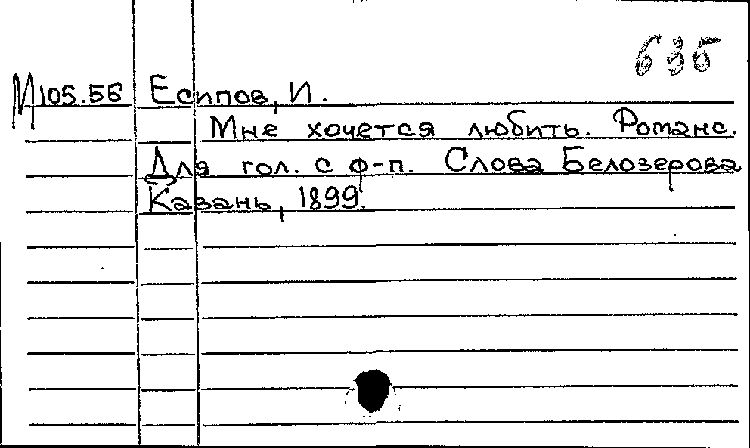 635
М105.56 Есипов, И.
Мне хочется любить. Романс.
Для гол. с ф-п. Слова Белозерова
Казань, 1899.